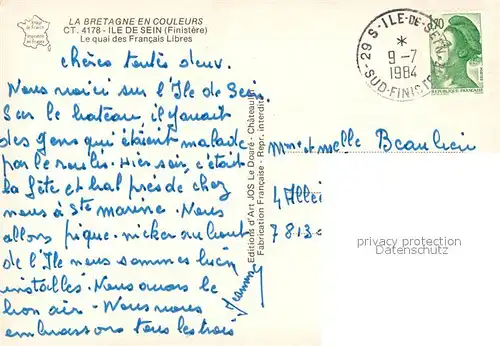 LA BRETAGNE EN COULEURS
CT. 4178 - ILE DE SEIN (Finistère)
Le quai des Français Libres
chères toutes deux.
Nous voici sur l'Ile de Sein
Sur le bateau, il y avait
des gens qui étaient malade
par le roulis. Hier soir, c'était
la fête et bal près de chez
nous à Ste marine. Nous
allons pique-nicker au bout
de l'Ile nous sommes bien
installés. Nous avons le
bon air - Nous vous
embrassons tous les trois
Editions d'Art JOS Le Doaré - Châteaulin
Fabrication Française - Repr. interdite
29 S-ILE-DE-SEIN
*
9-7
1984
SUD-FINISTERE
REPUBLIQUE FRANCAISE
Mme et melle Beaulieu
4 Allée
7813
privacy protection
Datenschutz